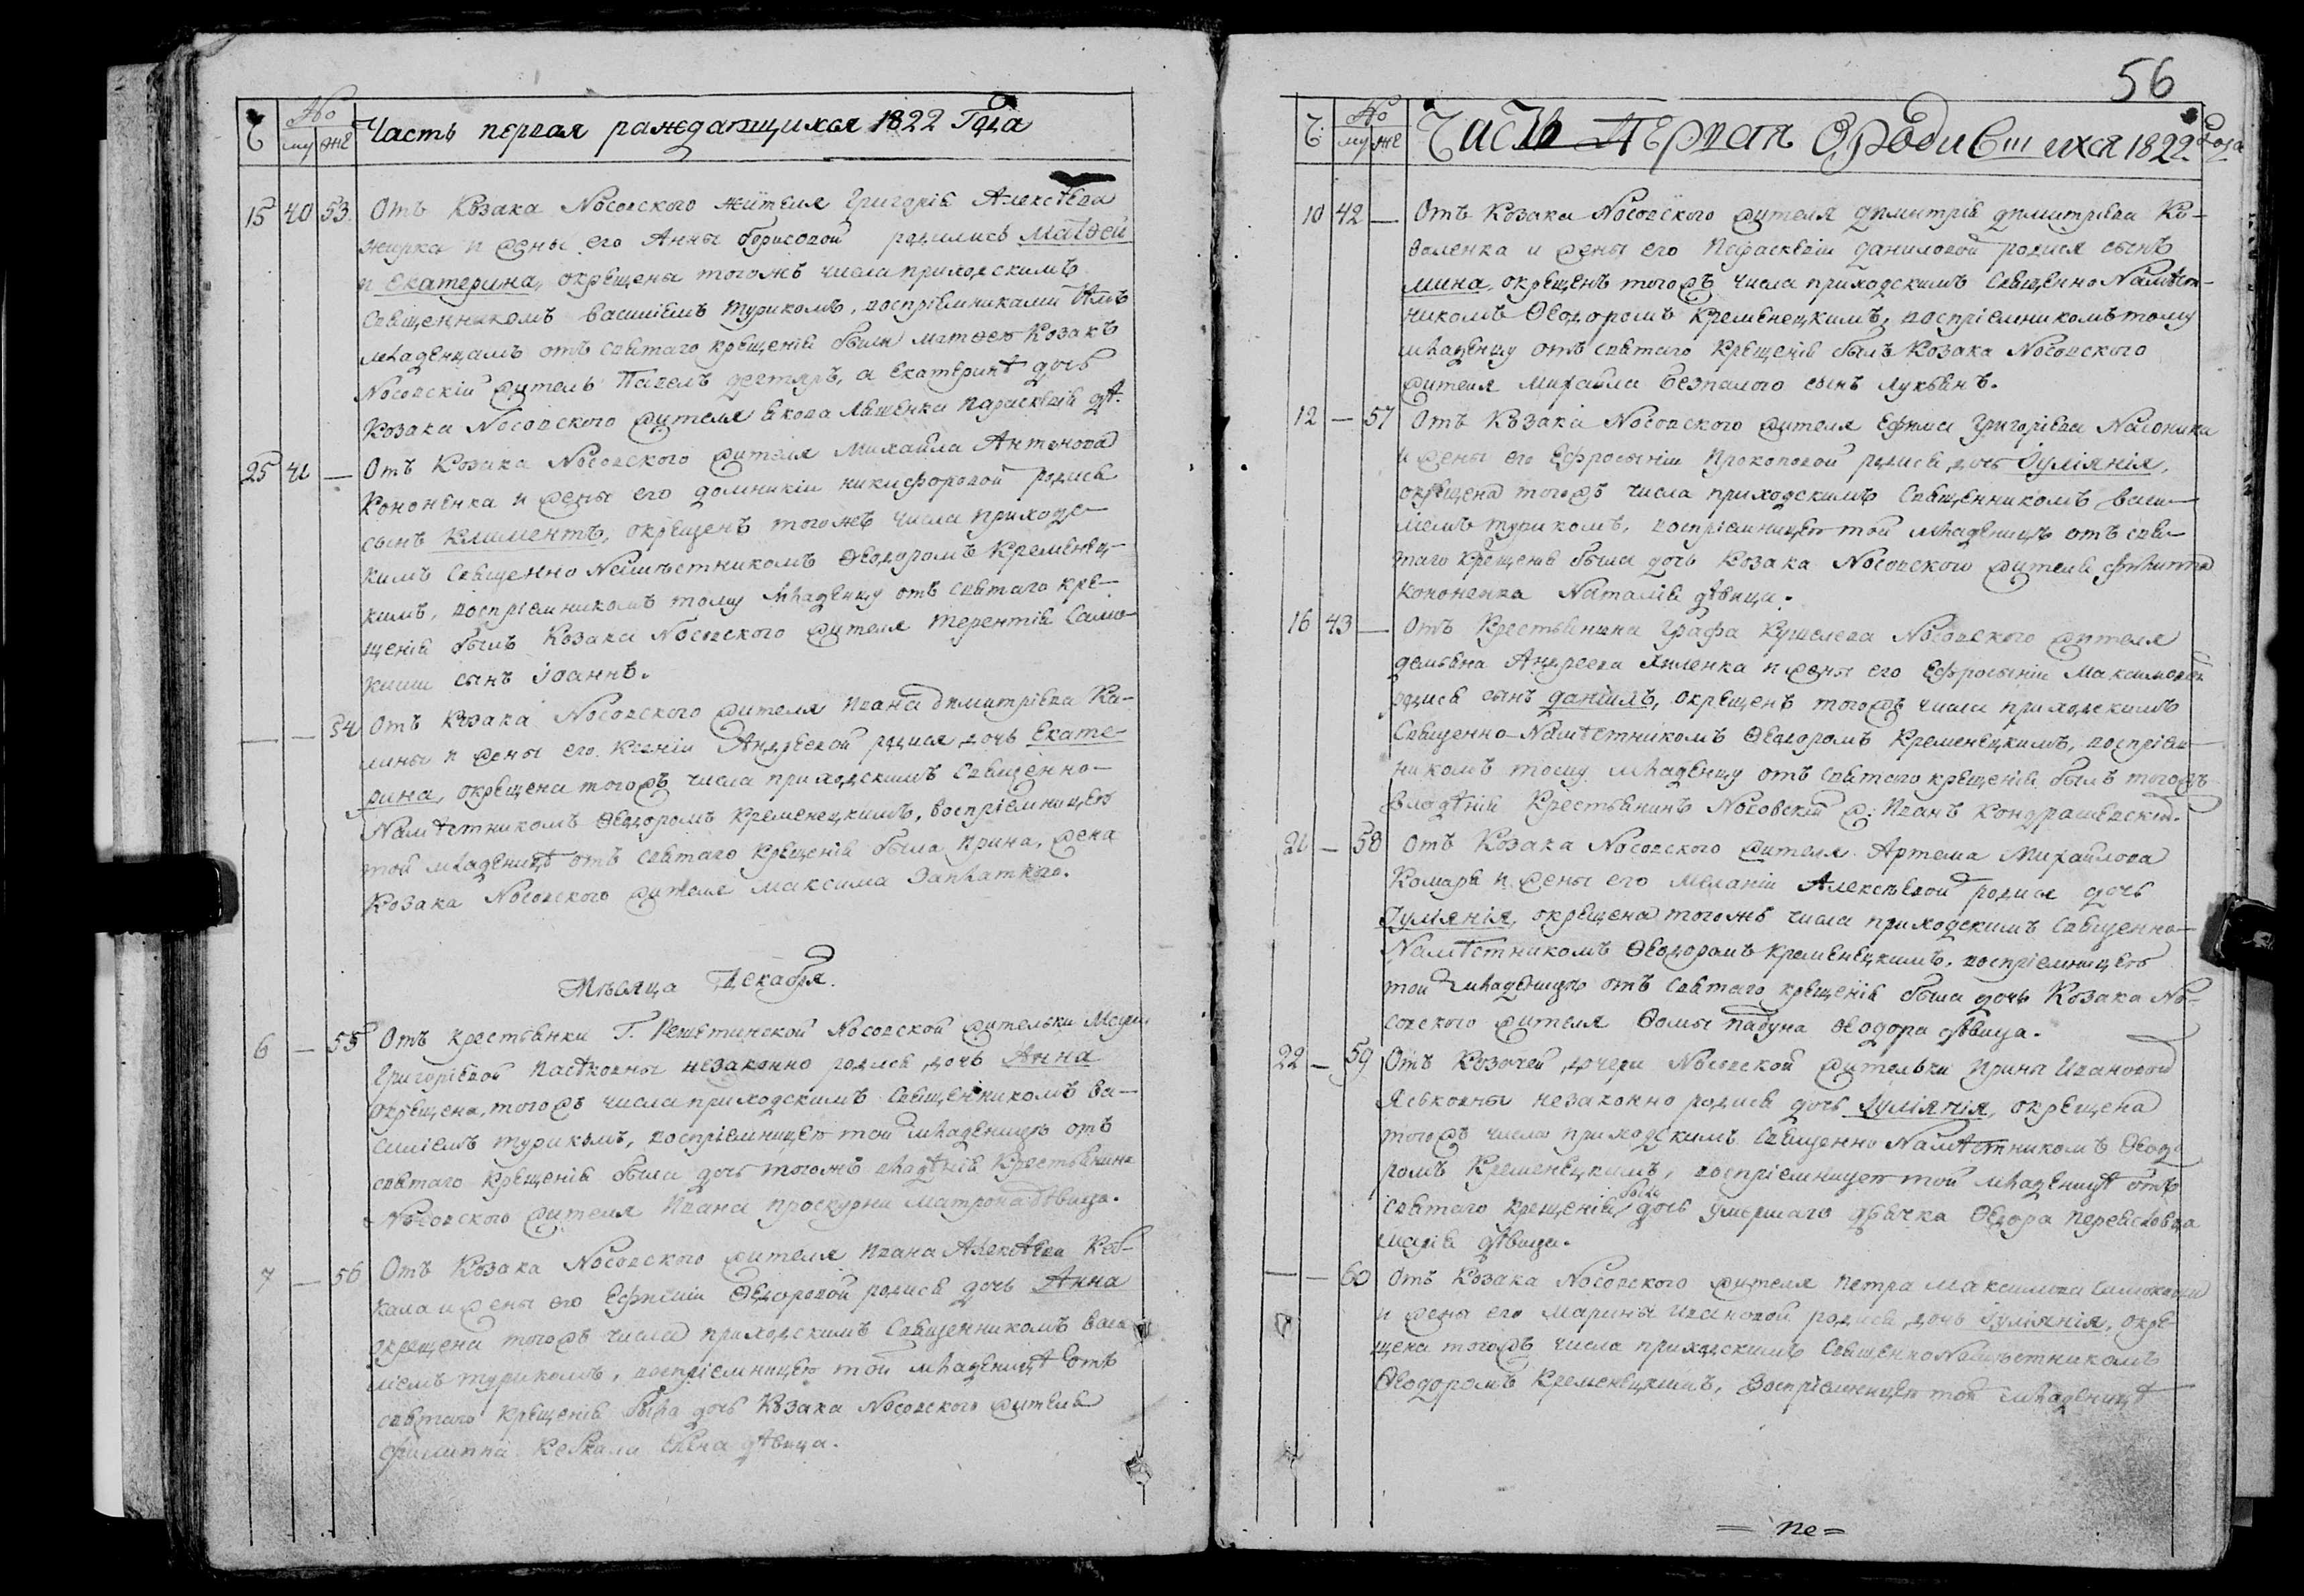 Ч. № му же Часть первая раждающихся 1822 Года
15 40 53. Отъ Козака Носовского жителя Григорія Алексѣева
и жены его Анны Борисовой родились Матѳей
и Екатерина, окрещены тогожъ числа приходскимъ
Священникомъ Василіемъ Турикомъ, воспріемниками имъ
младенцамъ отъ святаго крещенія были Матѳею Козакъ
Носовскій житель Павелъ Дегтяръ, а Екатеринѣ дочь
Козака Носовского жителя Якова Парасковія дѣ.
25 41 — Отъ Козака Носовского жителя Михайла Антонова
Кононенка и жены его Домникіи Никифоровой родися
сынъ Климентъ, окрещенъ тогожъ числа приходс-
кимъ Священно Намѣстникомъ Ѳеодоромъ Кременец-
кимъ, воспріемникомъ тому младенцу отъ святаго кре-
щенія былъ Козака Носовского жителя Терентія Само-
киши сынъ Іоаннъ.
— — 54 Отъ Козака Носовского жителя Ивана Димитріева Ка-
лины и жены его Ксеніи Андреевой родися дочь Екате-
рина, окрещена тогожъ числа приходскимъ Священно-
Намѣстникомъ Ѳеодоромъ Кременецкимъ, воспріемницею
той младеницѣ отъ святаго крещенія была Ирина, жена
Козака Носовского жителя Максима Заплаткаго.
Мѣсяца Декабря.
6 — 55 Отъ крестьянки Г. Решетинской Носовской жительки Маріи
Григоріевой незаконно родися дочь Анна
окрещена, тогожъ числа приходскимъ Священникомъ Ва-
силіемъ Туриком, воспріемницею той младеницѣ отъ
святаго крещенія была дочь тогожъ владѣнія Крестьянина
Носовского жителя Ивана Проскурни Матрона дѣвица.
7 — 56 Отъ Козака Носовского жителя Ивана Алексѣева Кеб-
кала и жены его Ефиміи Ѳедоровой родися дочь Анна
окрещена тогожъ числа приходскимъ Священникомъ Васи
ліемъ Турикомъ, воспріемницею той младеницѣ отъ
святаго крещенія была дочь Козака Носовского жителя
Филиппа Кебкала дѣвица.
56
Ч. № му же Часть Первая О родившихся 1822. Года
10 42 — Отъ Козака Носовского жителя Димитрія Димитріева Ко-
валенка и жены его Парасквіи Даниловой родися сынъ
Мина, окрещенъ тогожъ числа приходскимъ Священно Намѣст-
никомъ Ѳеодоромъ Кременецкимъ, воспріемникомъ тому
младенцу отъ святаго крещенія былъ Козака Носовского
жителя Михайла Безпалого сынъ Лукьянъ.
12 — 57 Отъ Козака Носовского жителя Ефима Григоріева
и жены его Ефросыніи Прокоповой родися дочь Іуліянія,
окрещена тогожъ числа приходскимъ Священникомъ Васи-
ліемъ Турикомъ, воспріемницею той младеницѣ отъ свя-
таго крещенія была дочь Козака Носовского жителя Филиппа
Кононенка Наталія дѣвица.
16 43 — Отъ Крестьянина Графа Кушелева Носовского жителя
Демьяна Андреева и жены его Ефросыніи Максимовой
родися сынъ Даніилъ, окрещенъ тогожъ числа приходскимъ
Священно-Намѣстникомъ Ѳеодоромъ Кременецкимъ, воспріем-
никомъ тому младенцу отъ святаго крещенія былъ тогожъ
владѣнія Крестьянинъ Носовскій ж: Иванъ Кондрашевскій.
21 — 58 Отъ Козака Носовского жителя Артема Михайлова
Комаря и жены его Меланіи Алексѣевой родися дочь
Іуліянія, окрещена тогожъ числа приходскимъ Священно-
Намѣстникомъ Ѳеодоромъ Кременецкимъ, воспріемницею
той младеницѣ отъ святаго крещенія была дочь Козака Но-
совского жителя Ѳомы Ѳеодора дѣвица.
22 — 59 Отъ Козачей дочери Носовской жительки Ирины Ивановой
Яськовны незаконно родися дочь Іуліянія, окрещена
тогожъ числа приходскимъ Священно Намѣстникомъ Ѳеодо
ромъ Кременецкимъ, воспріемницею той младеницѣ отъ
святаго крещенія была дочь умершаго дьячка Ѳедора
Марія дѣвица.
— — 60 Отъ Козака Носовского жителя Петра Максимова Самокиши
и жены его Марины Ивановой родися дочь Іуліянія, окре-
щена тогожъ числа приходскимъ Священно Намѣстникомъ
Ѳеодоромъ Кременецкимъ, воспріемницею той младеницѣ